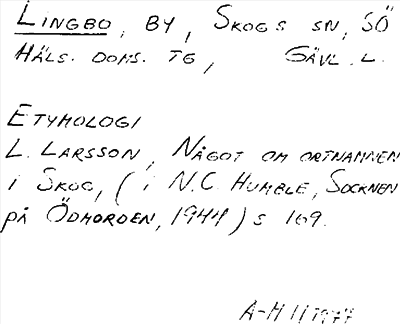 LINGBO, BY, SKOGS SN, SÖ
HÄLS. DOMS. TG, GÄVL. L.
ETYMOLOGI
L. LARSSON, NÅGOT OM ORTNAMNEN
I SKOG, (I N.C. HUMBLE, SOCKNEN
PÅ ÖDMORDEN, 1944) S 169.
A-M 1977